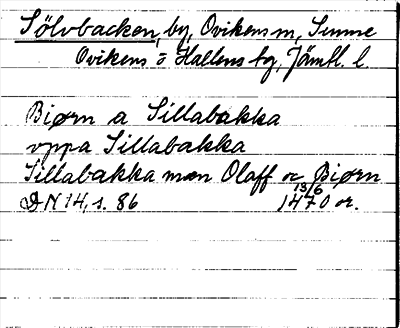 Sölvbacken, by, Ovikens sn, Sunne
Ovikens o Hallens tg, Jämtl. l.
Biørn a Sillabakka
vppa Sillabakka
Sillabakka mæn Olaff oc Biørn
DN 14, s. 86 13/6 1470 or.